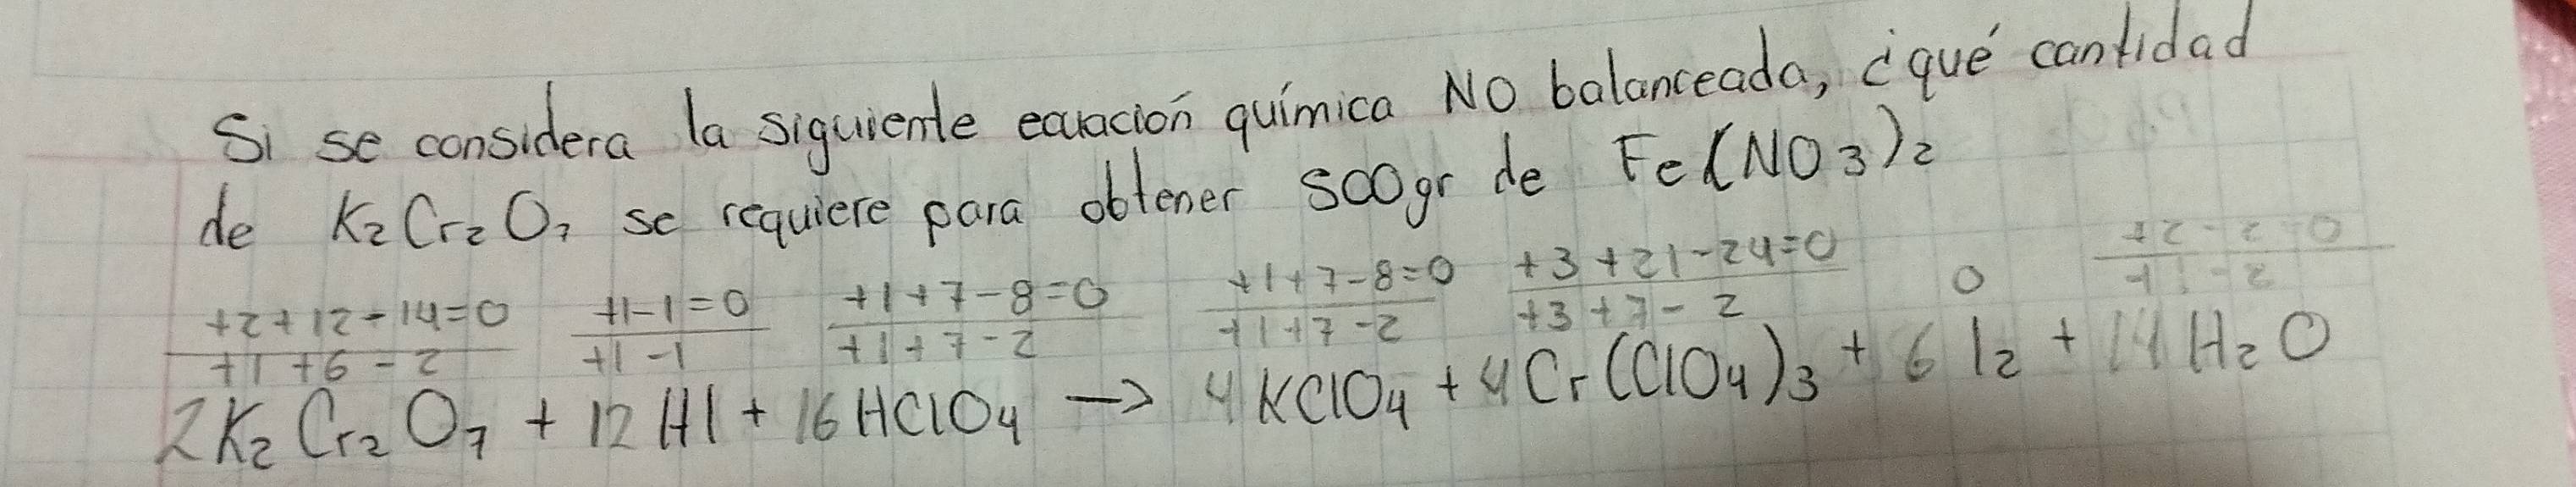 Si se considera la siguiente ecuación química NO balanceada, ¿qué cantidad
de K₂Cr₂O₇ se requiere para obtener 500gr de Fe(NO₃)₂
+2+12-14=0 +1-1=0 +1+7-8=0 +1+7-8=0 +3+21-24=0 0 +2-2=0
+1+6-2 +1-1 +1+7-2 +1+7-2 +3+7-2 +1-2
2K₂Cr₂O₇ + 12HI + 16HClO₄ → 4KClO₄ + 4Cr(ClO₄)₃ + 6I₂ + 14H₂O